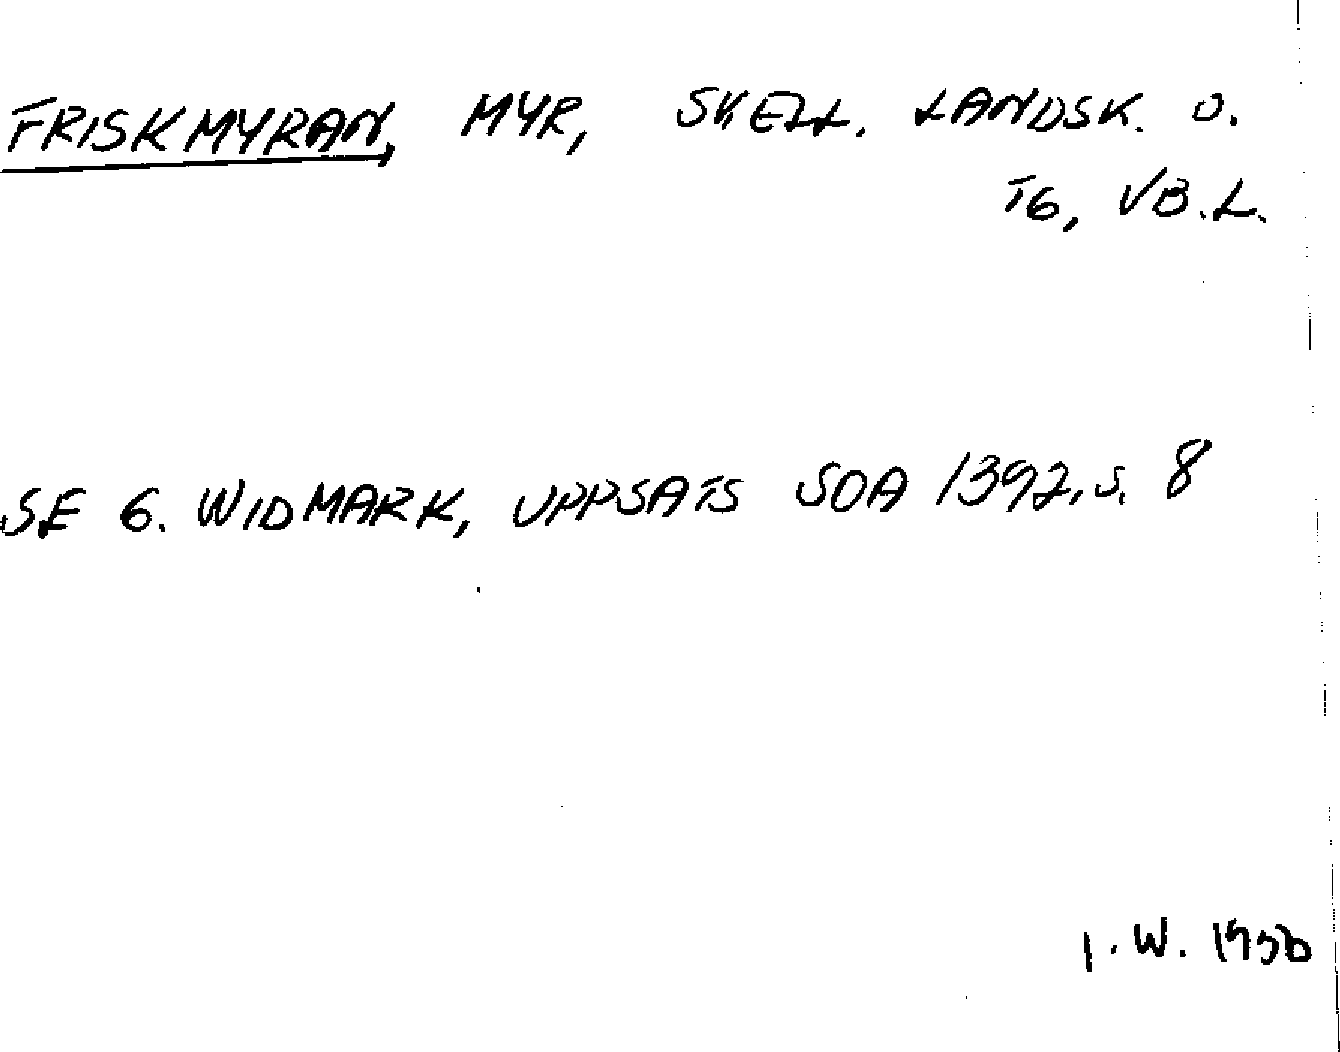 FRISKMYRAN, MYR, SKELL. LANDSK. O.
TG, VB.L.
SE G. WIDMARK, UPPSATS SOA 1392, S. 8
I. W.